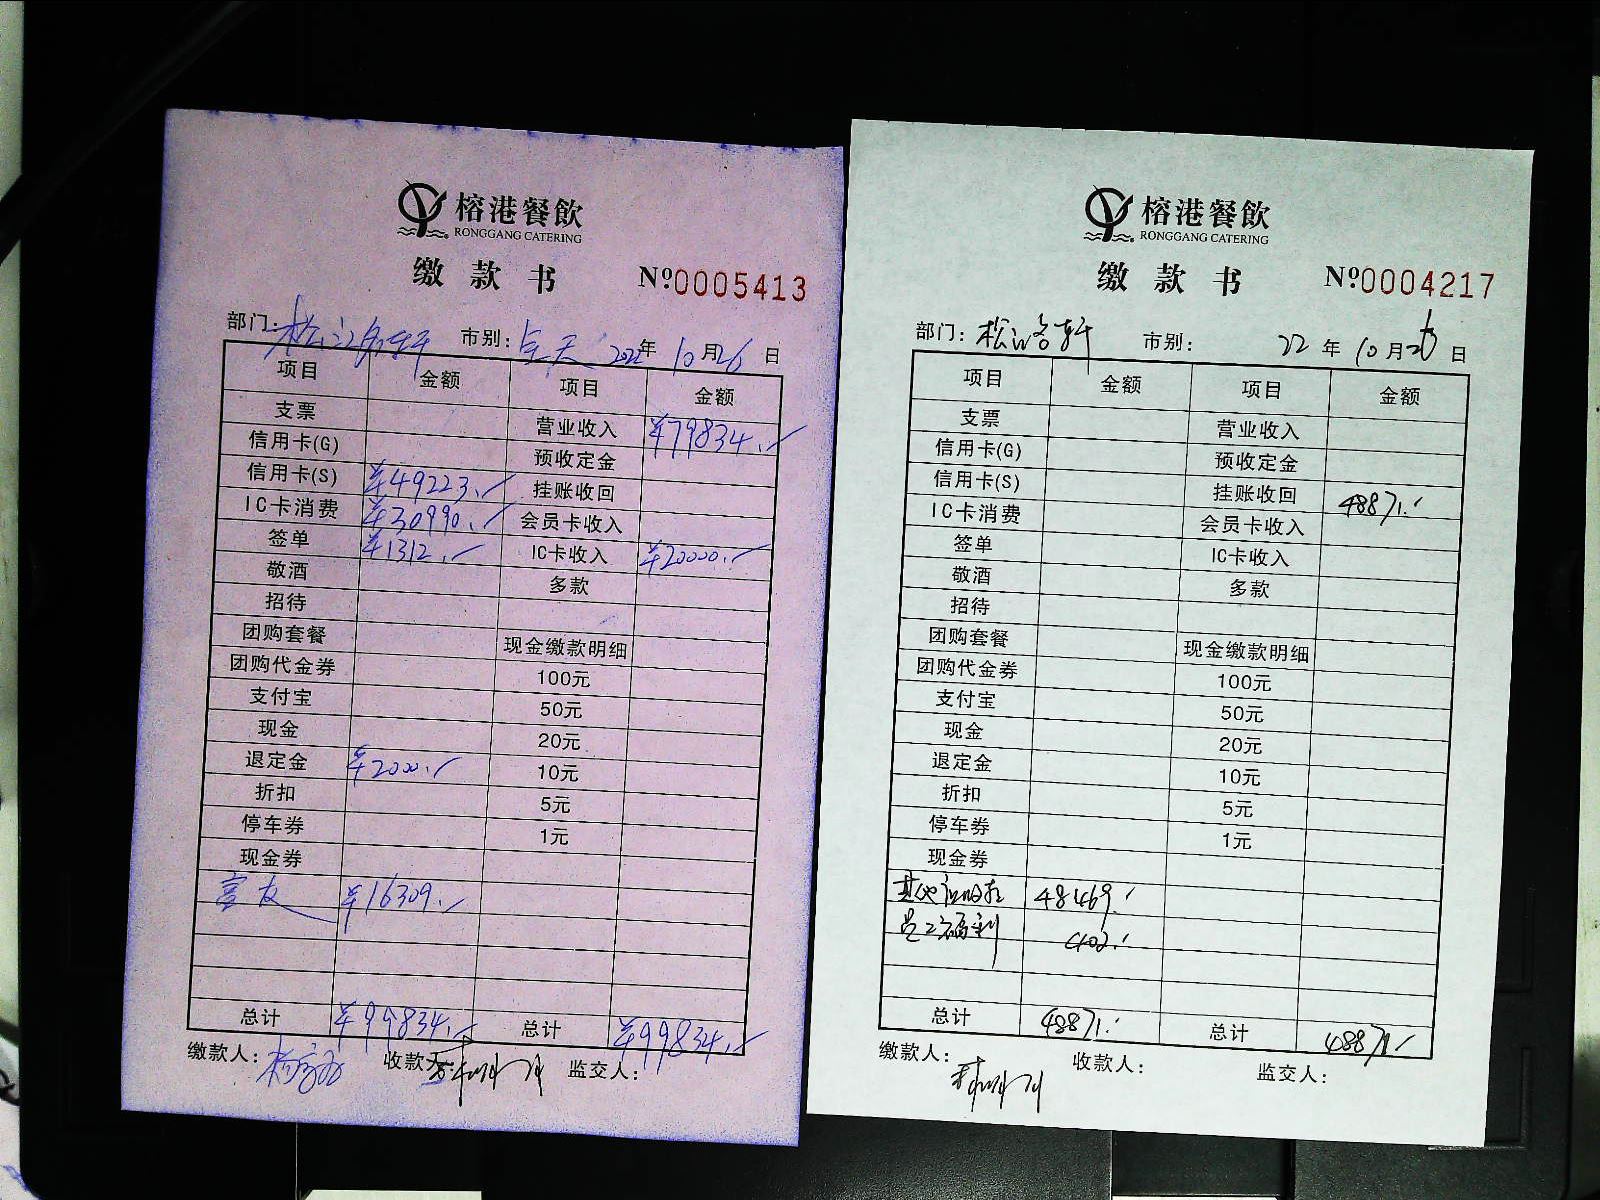 榕港餐飲
RONGGANG CATERING
缴款书 №0005413
部门: 松江容轩 市别: 全天 2022年10月26日
项目 金额 项目 金额
支票 营业收入 ¥79834.-
信用卡(G) 预收定金
信用卡(S) ¥49223.- 挂账收回
IC卡消费 ¥30990.- 会员卡收入
签单 ¥1312.- IC卡收入 ¥20000.-
敬酒 多款
招待
团购套餐 现金缴款明细
团购代金券 100元
支付宝 50元
现金 20元
退定金 ¥2000.- 10元
折扣 5元
停车券 1元
现金券
¥16309.-
总计 ¥99834.- 总计 ¥99834.-
缴款人: 收款人: 监交人:
榕港餐飲
RONGGANG CATERING
缴款书 №0004217
部门: 松江容轩 市别: 22年10月26日
项目 金额 项目 金额
支票 营业收入
信用卡(G) 预收定金
信用卡(S) 挂账收回 48871.-
IC卡消费 会员卡收入
签单 IC卡收入
敬酒 多款
招待
团购套餐 现金缴款明细
团购代金券 100元
支付宝 50元
现金 20元
退定金 10元
折扣 5元
停车券 1元
现金券
其他应收款 48469.-
员工福利 402.-
总计 48871.- 总计 48871.-
缴款人: 收款人: 监交人: